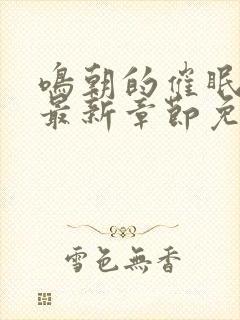 鳴朝的催眠
最新章節免
雪色無香